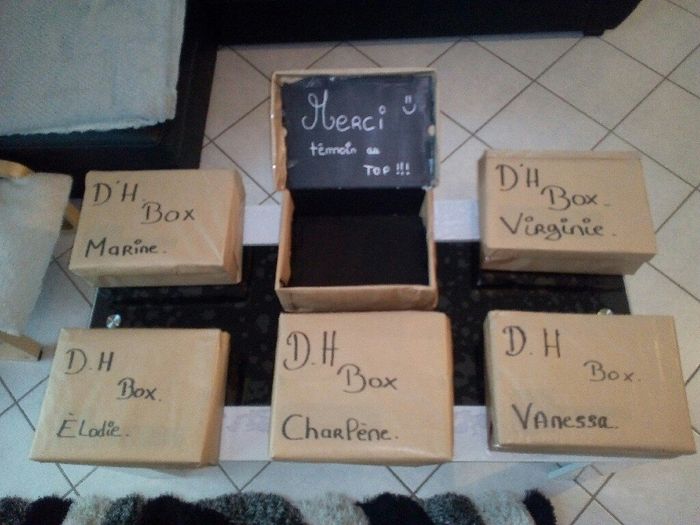 Merci
témoin au
TOP !!!
D'H
Box
Marine.
D'H
Box.
Virginie.
D.H
Box.
Élodie.
D.H
Box
Charlène.
D.H
Box.
Vanessa.